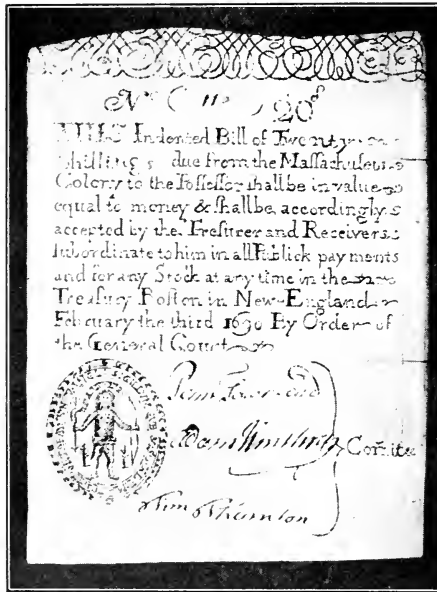 Nº 20ˢ
THIS Indented Bill of Twenty
Shillings due from the Massachusets
Colony to the Possessor shall be in value
equal to money & shall be accordingly
accepted by the Tresurer and Receivers
subordinate to him in all Publick payments
and for any Stock at any time in the
Treasury Boston in New-England
February the third 1690 By Order of
the General Court
Penn Townsend
Adam Winthrop Comitee
Tim Thornton